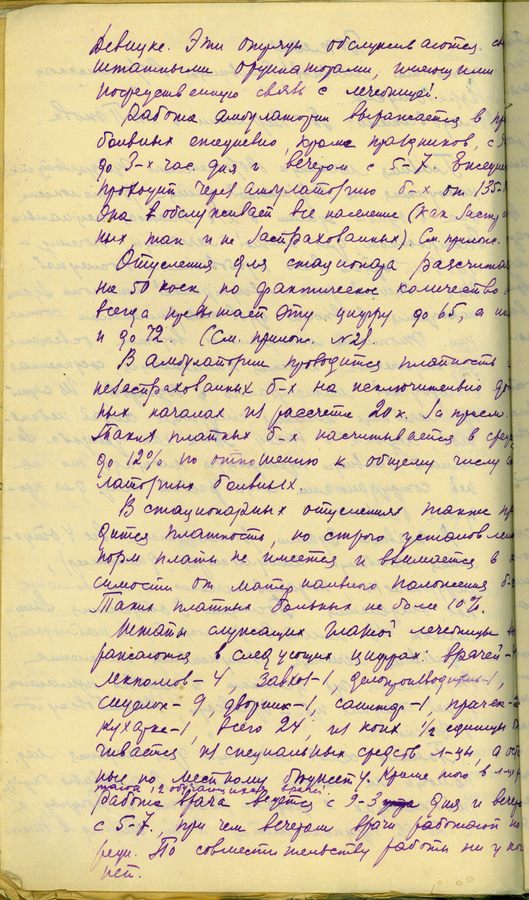 Девицке. Эти отряды обслуживаются
штатными ординаторами, имеющими
посредственную связь с лечебницей.
Работа амбулатории выражается в
больных ежедневно, кроме праздников, с
до 3-х час. дня и вечером с 5-7.
проходит через амбулаторию б-х от 135
Она обслуживает все население (как застра
ных так и не застрахованных). См. прилож.
Отделения для стационара рассчитан
на 50 коек, но фактическое количество
всегда превышает эту цифру до 65, а
и до 72. (См. прилож. №2).
В амбулатории проводится платность
незастрахованных б-х на исключительно
ных началах из рассчета 20 к. за прием.
Таких платных б-х насчитывается в сред
до 12% по отношению к общему числу
латорных больных.
В стационарных отделениях также
дится платность, но строго установлен
норм платы не имеется и взимается в
симости от материального положения б-
Таких платных больных не более 10%.
Штаты служащих главной лечебницы
ражаются в следующих цифрах: врачей-
лекпомов-4, завхоз-1, делопроизводитель-1,
сиделок-9, дворник-1, санитар-1, прачек-
кухарка-1, всего 24, из коих 1/2 единицы
чивается из специальных средств л-цы, а
ные по местному бюджету. Кроме того в л-це
врачей.
работа врача ведется с 9-3 дня и вечер
с 5-7, при чем вечером врачи работают по
реди. По совместительству работы ни у
нет.